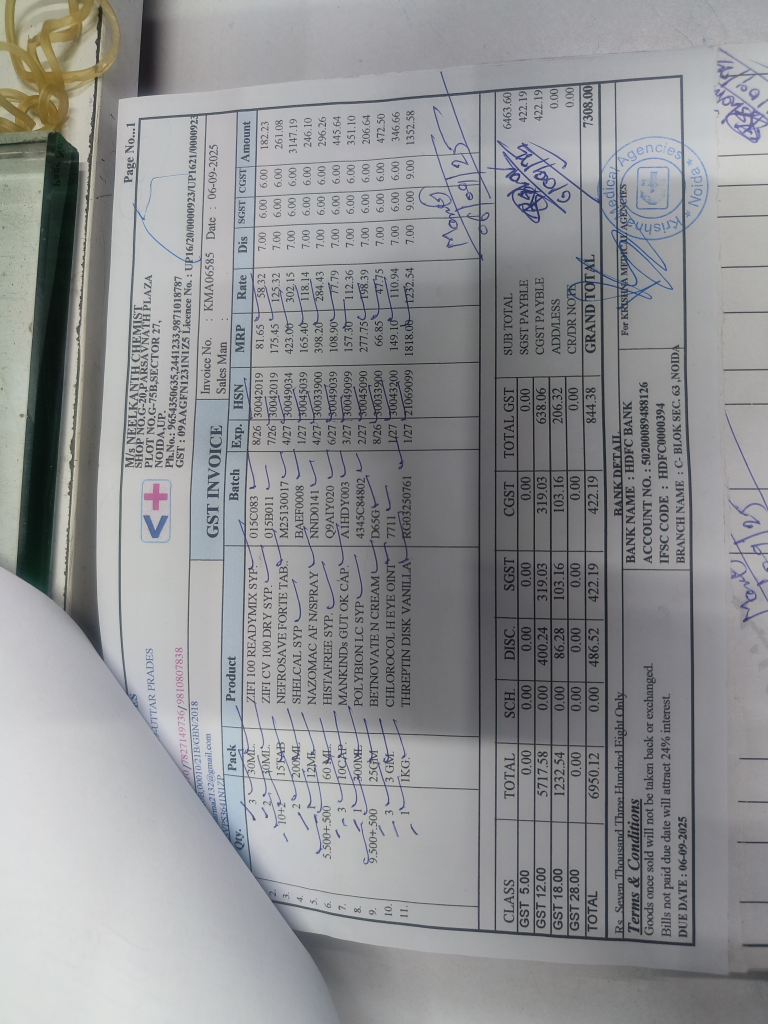 Page No...1
M/s NEELKANTH CHEMIST
SHOP NO.G-20A,PARSAVNATH PLAZA
PLOT NO.G-75B,SECTOR 27,
NOIDA,UP.
Ph.No.: 9654350635,2441233,9871018787
GST : 09AACFN1231N1Z5 Licence No. : UP16/20/0000923/UP1621/0000923
UTTAR PRADES
7827149736/9810807838
GST INVOICE
Invoice No. : KMA06585 Date : 06-09-2025
Sales Man :
Qty. Pack Product Batch Exp. HSN MRP Rate Dis SGST CGST Amount
3 30ML ZIFI 100 READYMIX SYP. 015C083 8/26 30042019 81.65 58.32 7.00 6.00 6.00 182.23
2. 2 30ML ZIFI CV 100 DRY SYP. 015B011 7/26 30042019 175.45 125.32 7.00 6.00 6.00 261.08
3. 10+2 15TAB NEFROSAVE FORTE TAB. M25130017 4/27 30049034 423.00 302.15 7.00 6.00 6.00 3147.19
4. 2 200ML SHELCAL SYP BAEF0008 1/27 30045039 165.40 118.14 7.00 6.00 6.00 246.10
5. 1 12ML NAZOMAC AF N/SPRAY NND0141 4/27 30033900 398.20 284.43 7.00 6.00 6.00 296.26
6. 5.500+.500 60 ML HISTAFREE SYP. Q9AIY020 6/27 30049039 108.90 77.79 7.00 6.00 6.00 445.64
7. 3 10CAP MANKINDs GUT OK CAP. A1HDY003 3/27 30049099 157.30 112.36 7.00 6.00 6.00 351.10
8. 1 300ML POLYBION LC SYP 4345C84802 2/27 30045090 277.75 198.39 7.00 6.00 6.00 206.64
9. 9.500+.500 25GM BETNOVATE N CREAM D65G 8/26 30033900 66.85 47.75 7.00 6.00 6.00 472.50
10. 3 3 GM CHLOROCOL H EYE OINT 7711 1/27 30043200 149.10 110.94 7.00 6.00 6.00 346.66
11. 1 1KG THREPTIN DISK VANILLA RG03250761 1/27 21069099 1818.05 1232.54 7.00 9.00 9.00 1352.58
CLASS TOTAL SCH. DISC. SGST CGST TOTAL GST
GST 5.00 0.00 0.00 0.00 0.00 0.00 0.00
GST 12.00 5717.58 0.00 400.24 319.03 319.03 638.06
GST 18.00 1232.54 0.00 86.28 103.16 103.16 206.32
GST 28.00 0.00 0.00 0.00 0.00 0.00 0.00
TOTAL 6950.12 0.00 486.52 422.19 422.19 844.38
SUB TOTAL 6463.60
SGST PAYBLE 422.19
CGST PAYBLE 422.19
ADD/LESS 0.00
CR/DR NOTE 0.00
GRAND TOTAL 7308.00
Rs. Seven Thousand Three Hundred Eight Only
Terms & Conditions
Goods once sold will not be taken back or exchanged.
Bills not paid due date will attract 24% interest.
DUE DATE : 06-09-2025
BANK DETAIL
BANK NAME : HDFC BANK
ACCOUNT NO. : 50200089488126
IFSC CODE : HDFC0000394
BRANCH NAME : C- BLOK SEC. 63 ,NOIDA
For KRISHNA MEDICAL AGENCIES
Krishna Medical Agencies * Noida *